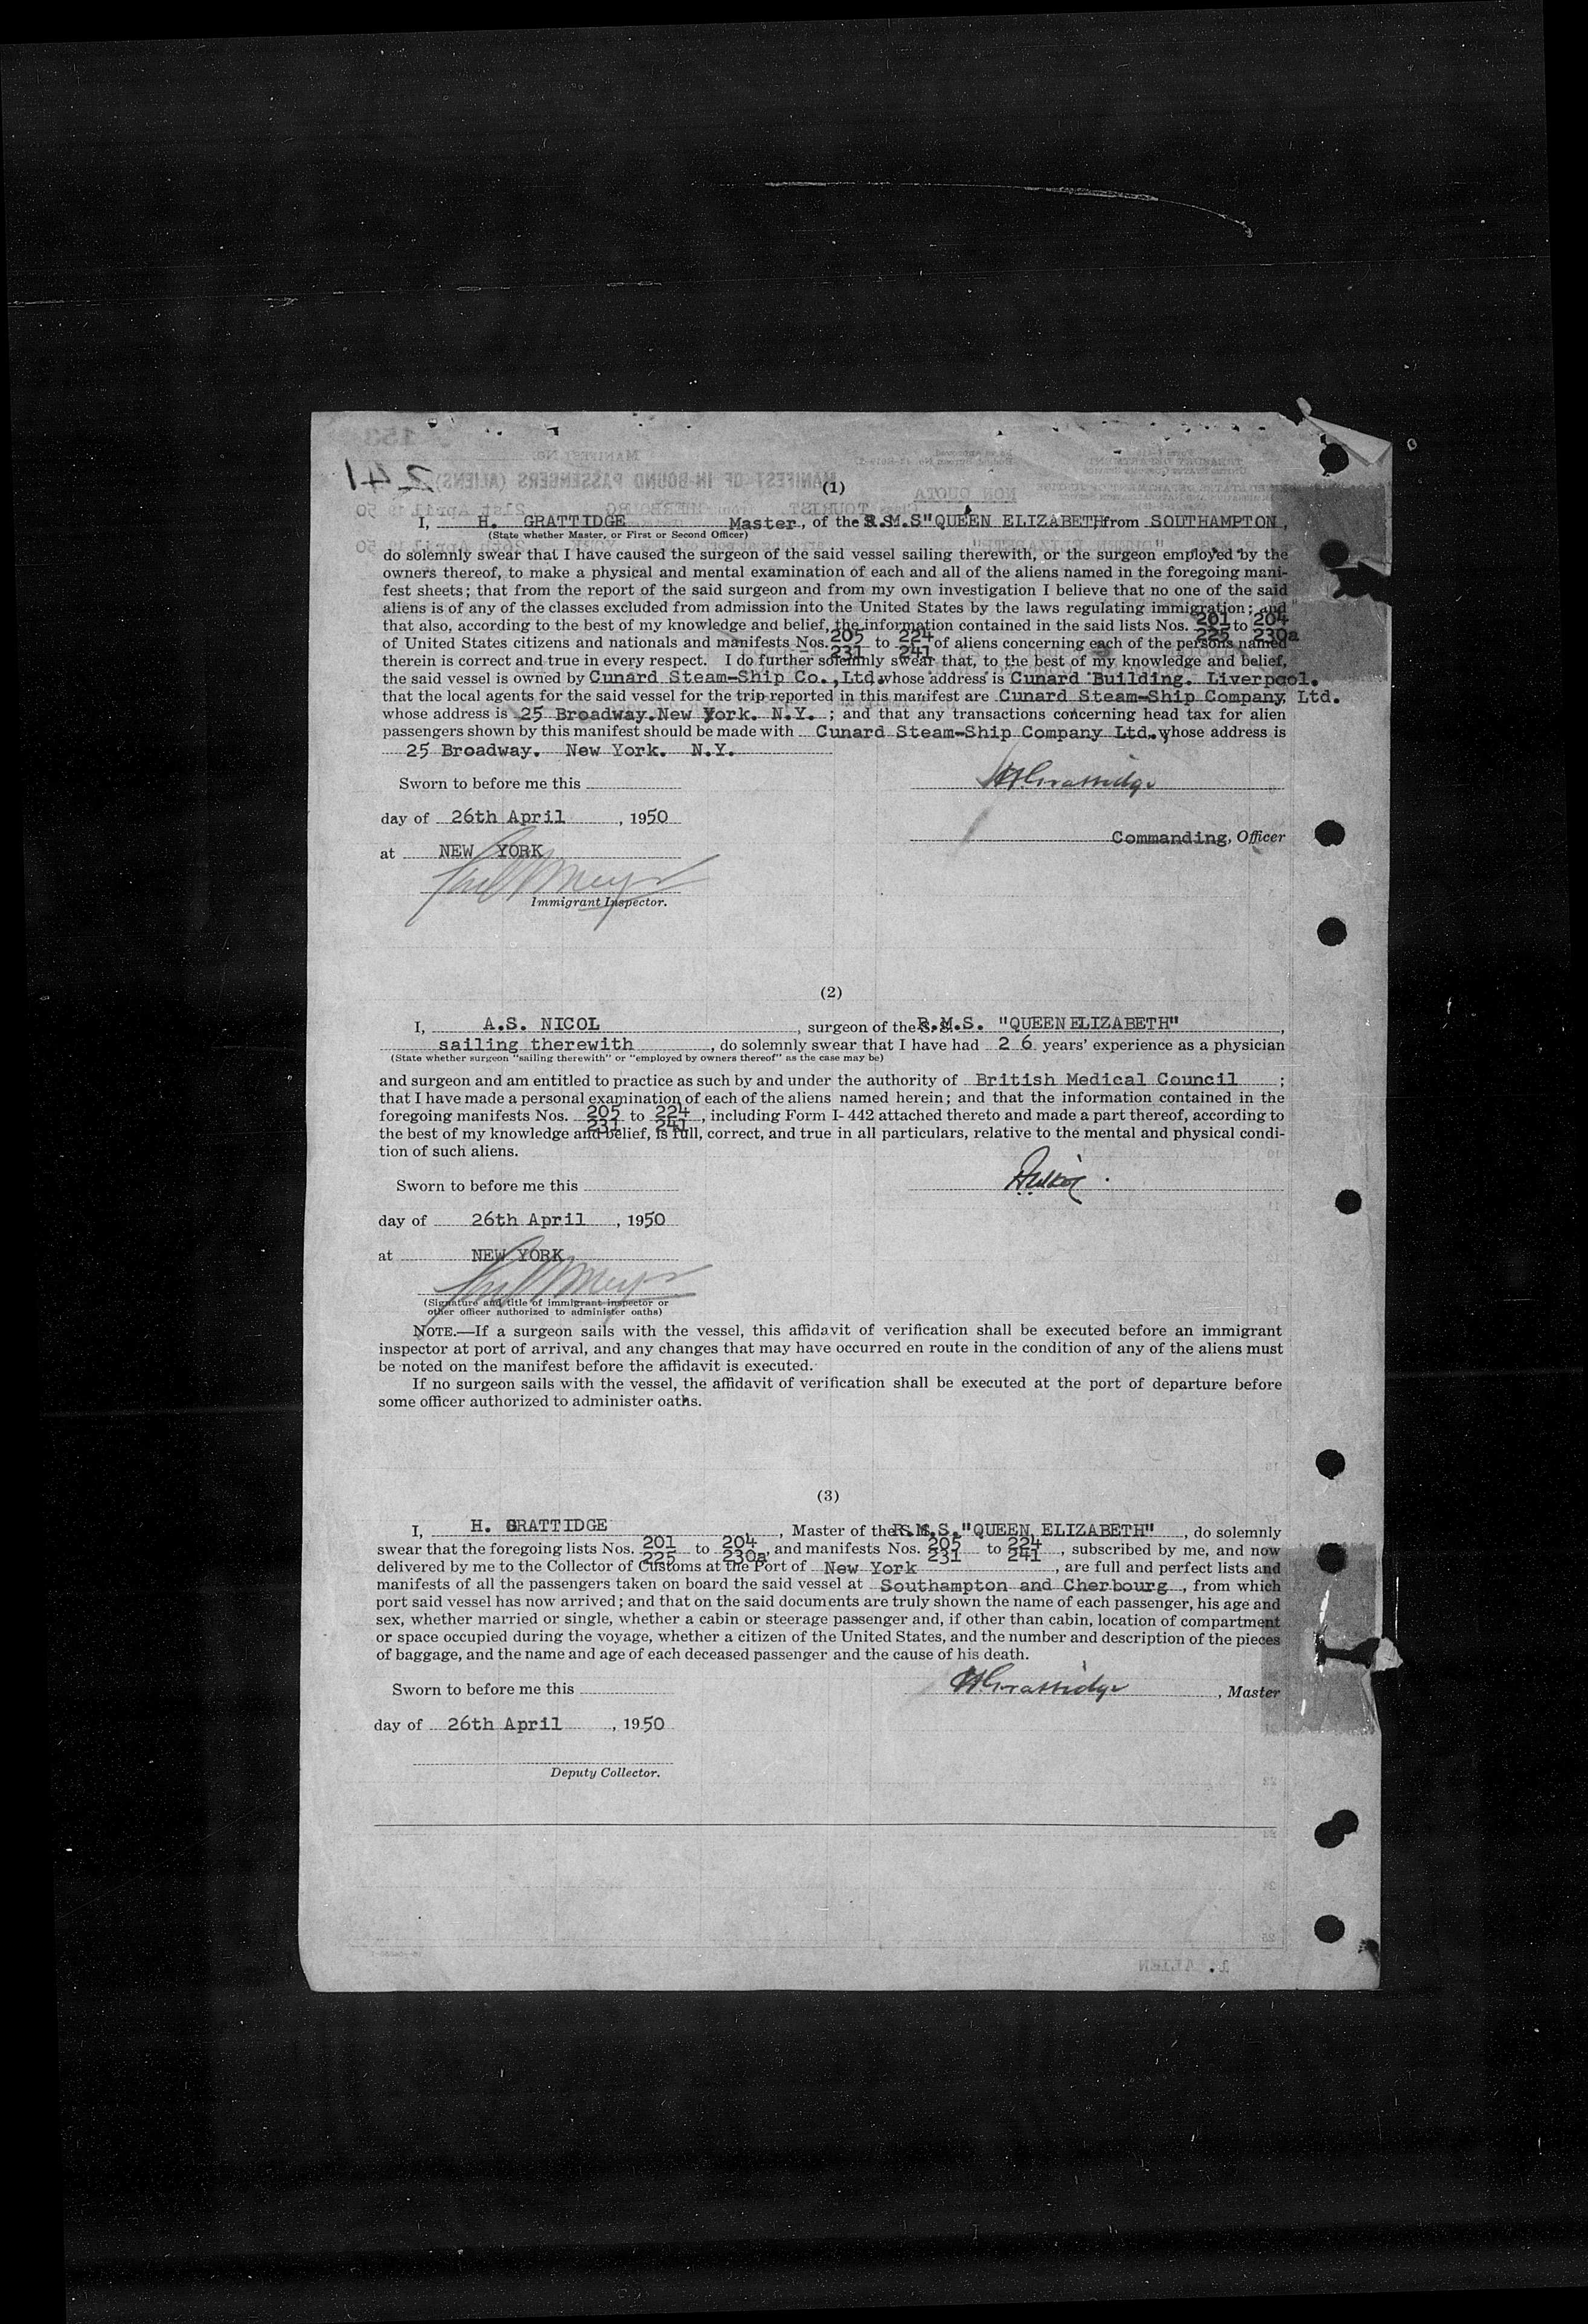 241
(1)
I, H. GRATTIDGE Master, of the R.M.S "QUEEN ELIZABETH", from SOUTHAMPTON,
(State whether Master, or First or Second Officer)
do solemnly swear that I have caused the surgeon of the said vessel sailing therewith, or the surgeon employed by the
owners thereof, to make a physical and mental examination of each and all of the aliens named in the foregoing mani-
fest sheets; that from the report of the said surgeon and from my own investigation I believe that no one of the said
aliens is of any of the classes excluded from admission into the United States by the laws regulating immigration; and
that also, according to the best of my knowledge and belief, the information contained in the said lists Nos. 201 to 204
225 230a
of United States citizens and nationals and manifests Nos. 205 to 224 of aliens concerning each of the persons named
231 241
therein is correct and true in every respect. I do further solemnly swear that, to the best of my knowledge and belief,
the said vessel is owned by Cunard Steam-Ship Co., Ltd. whose address is Cunard Building. Liverpool.
that the local agents for the said vessel for the trip reported in this manifest are Cunard Steam-Ship Company, Ltd.
whose address is 25 Broadway. New York. N.Y. ; and that any transactions concerning head tax for alien
passengers shown by this manifest should be made with Cunard Steam-Ship Company Ltd., whose address is
25 Broadway. New York. N.Y.
Sworn to before me this
H Grattidge
day of 26th April , 1950
Commanding, Officer
at NEW YORK
Immigrant Inspector.
(2)
I, A.S. NICOL , surgeon of the R.M.S. "QUEEN ELIZABETH" ,
sailing therewith , do solemnly swear that I have had 26 years' experience as a physician
(State whether surgeon "sailing therewith" or "employed by owners thereof" as the case may be)
and surgeon and am entitled to practice as such by and under the authority of British Medical Council ;
that I have made a personal examination of each of the aliens named herein; and that the information contained in the
foregoing manifests Nos. 205 to 224 , including Form I-442 attached thereto and made a part thereof, according to
231 241
the best of my knowledge and belief, is full, correct, and true in all particulars, relative to the mental and physical condi-
tion of such aliens.
Sworn to before me this
day of 26th April , 1950
at NEW YORK
(Signature and title of immigrant inspector or
other officer authorized to administer oaths)
NOTE.—If a surgeon sails with the vessel, this affidavit of verification shall be executed before an immigrant
inspector at port of arrival, and any changes that may have occurred en route in the condition of any of the aliens must
be noted on the manifest before the affidavit is executed.
If no surgeon sails with the vessel, the affidavit of verification shall be executed at the port of departure before
some officer authorized to administer oaths.
(3)
I, H. GRATTIDGE , Master of the R.M.S. "QUEEN ELIZABETH" , do solemnly
swear that the foregoing lists Nos. 201 to 204 , and manifests Nos. 205 to 224 , subscribed by me, and now
225 230a 231 241
delivered by me to the Collector of Customs at the Port of New York , are full and perfect lists and
manifests of all the passengers taken on board the said vessel at Southampton and Cherbourg , from which
port said vessel has now arrived; and that on the said documents are truly shown the name of each passenger, his age and
sex, whether married or single, whether a cabin or steerage passenger and, if other than cabin, location of compartment
or space occupied during the voyage, whether a citizen of the United States, and the number and description of the pieces
of baggage, and the name and age of each deceased passenger and the cause of his death.
Sworn to before me this
H Grattidge , Master
day of 26th April , 1950
Deputy Collector.